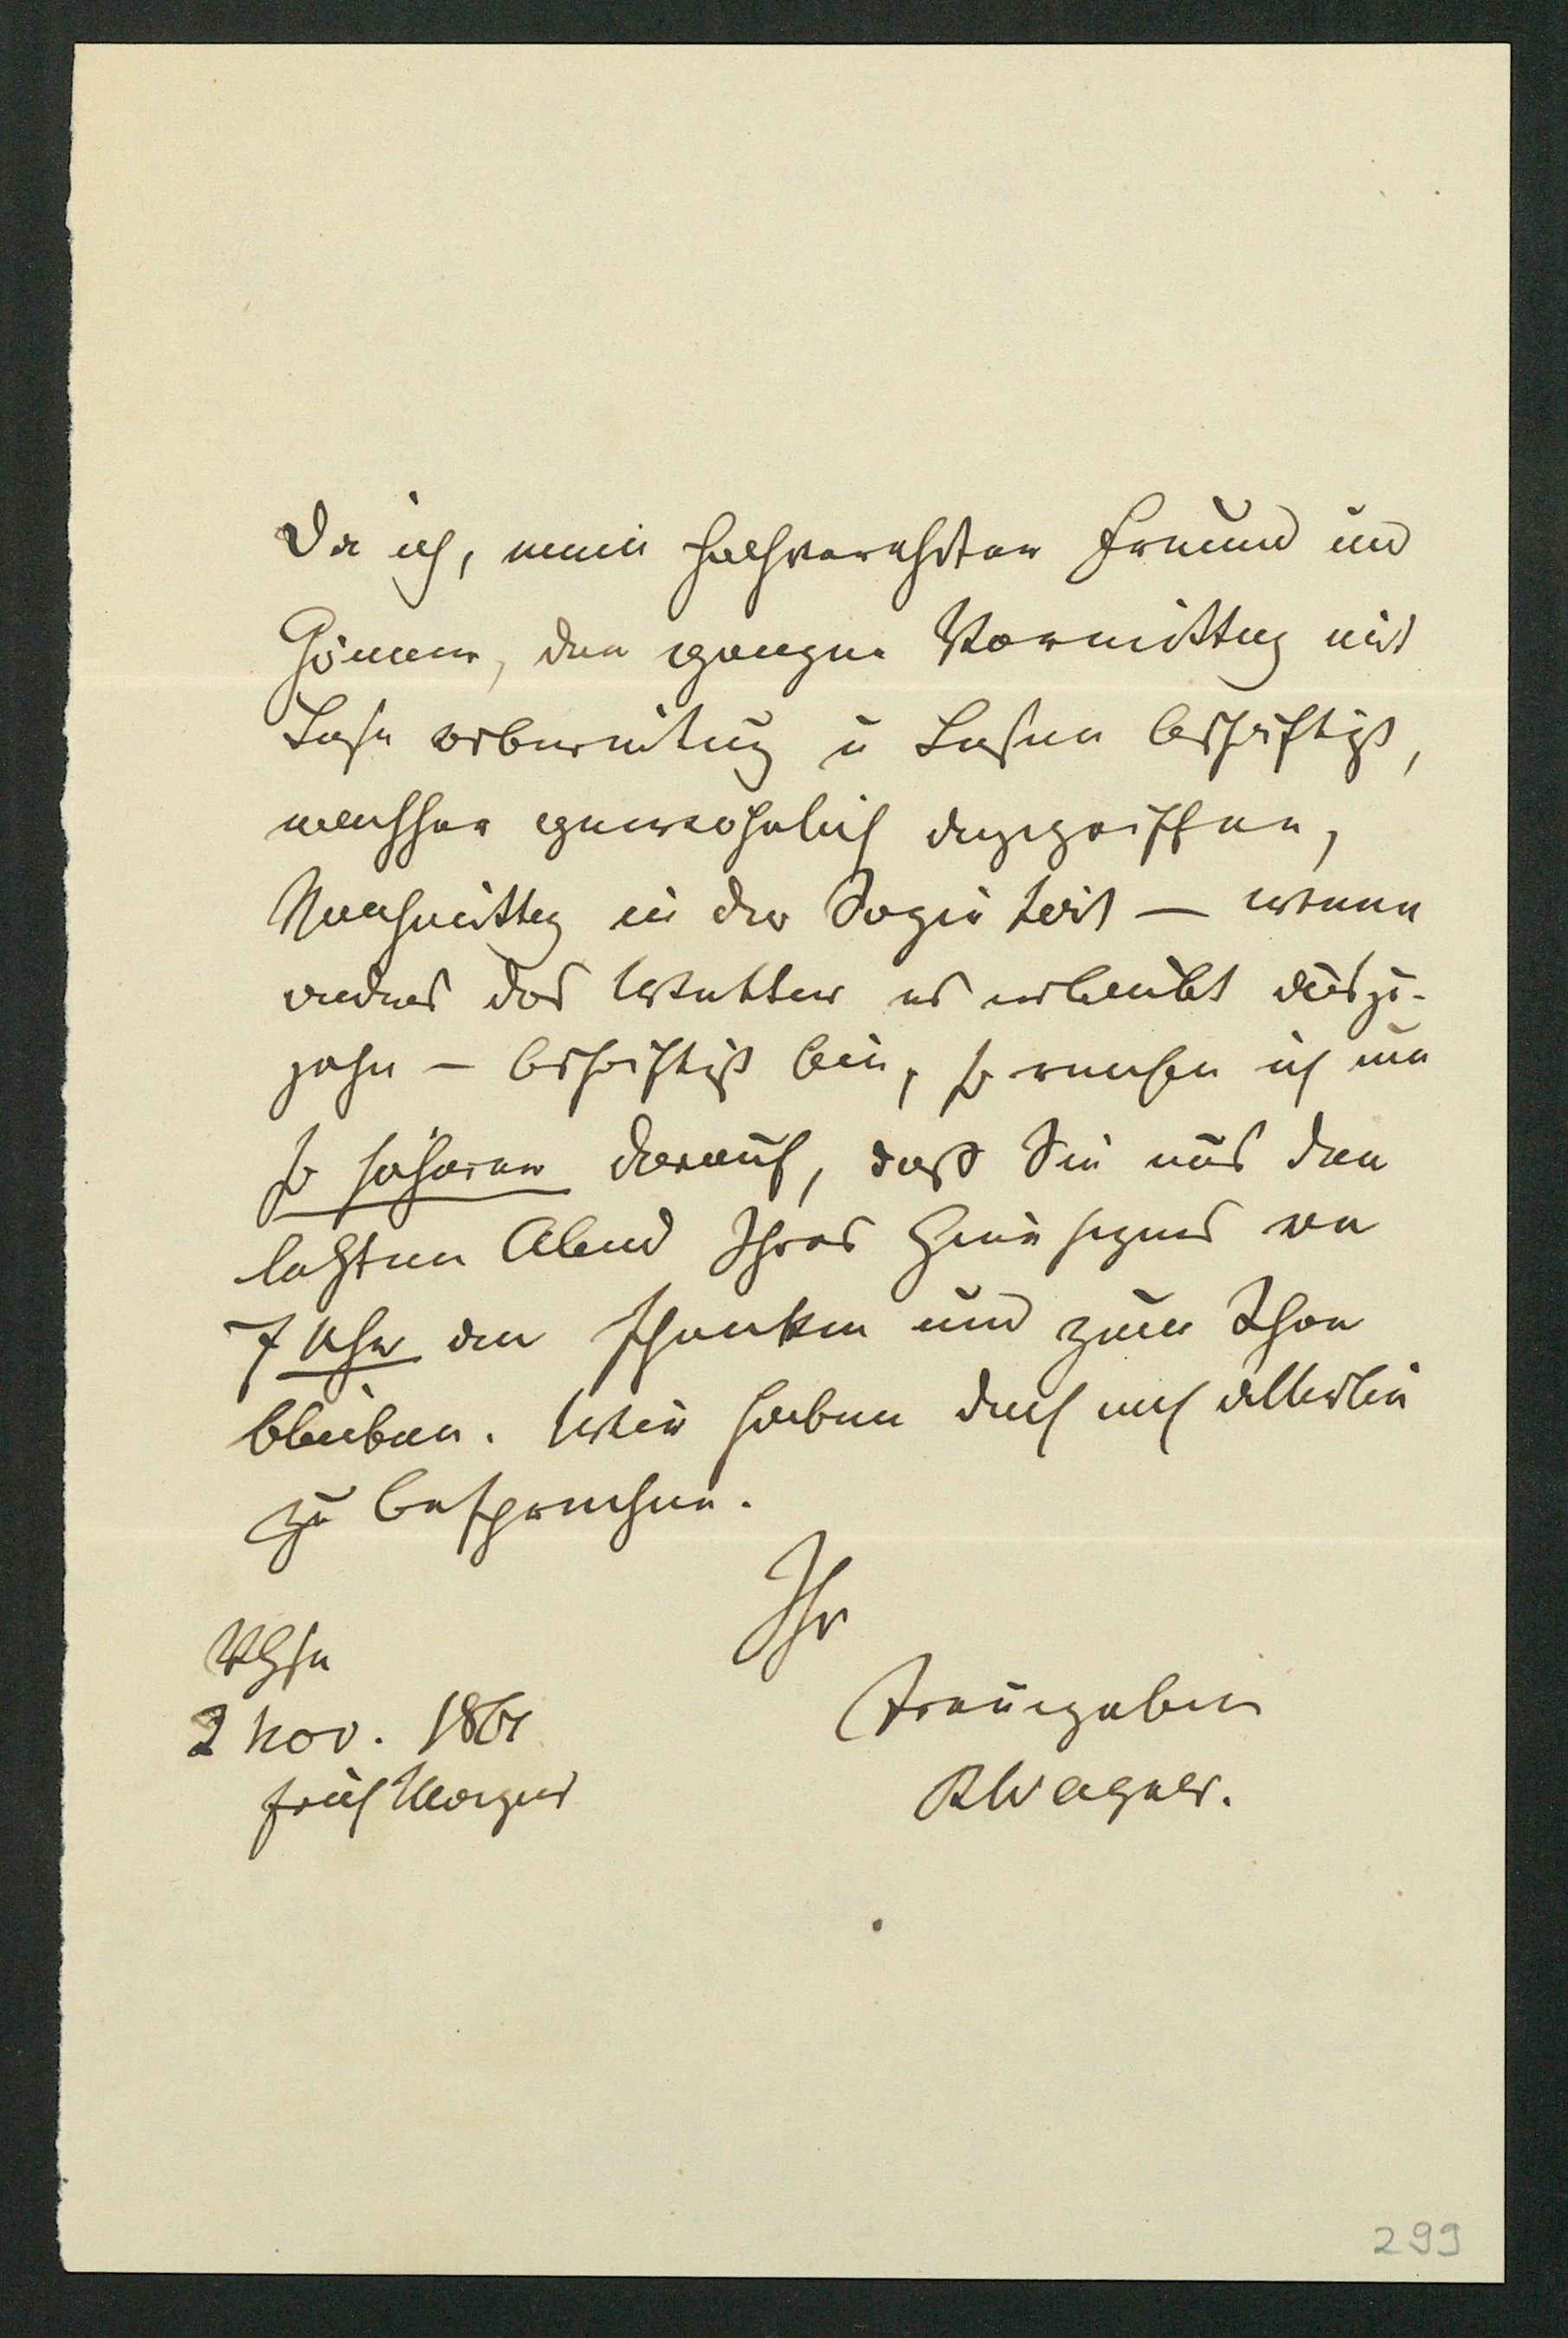 Da ich, mein hochverehrter Freund und
Gönner, den ganzen Vormittag mit
Lesevorbereitung u Lesen beschäftigt,
nachher gewöhnlich angegriffen,
Nachmittag in der Sozietät — wenn
anders das Wetter es erlaubt auszu-
gehn — beschäftigt bin, so rechne ich um
so sicherer darauf, daß Sie uns den
letzten Abend Ihres Hierseyns von
7 Uhr an schenken und zum Thee
bleiben. Wir haben doch noch allerlei
zu besprechen.
Ihr
2 Nov. 1861
früh Morgens
treuergebener
RWagner.
299